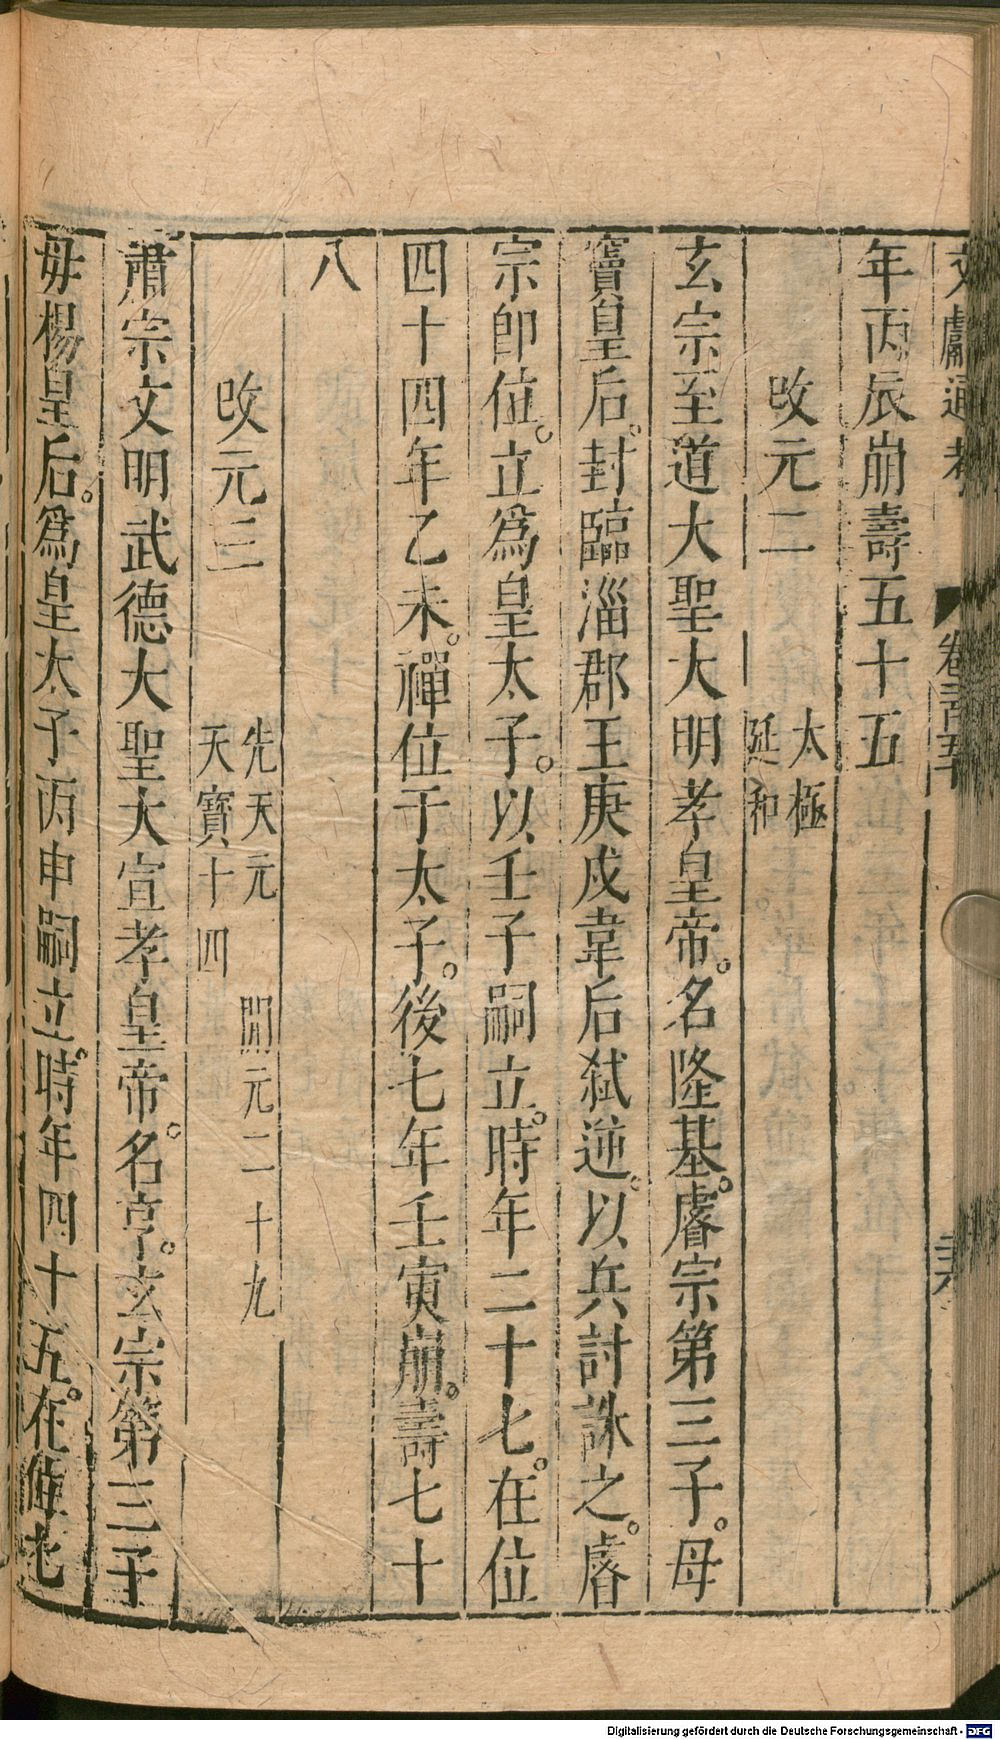 文獻通考 卷二百五十
年丙辰崩壽五十五
改元二 太極 延和
玄宗至道大聖大明孝皇帝。名隆基。睿宗第三子。母
竇皇后。封臨淄郡王庚戌韋后弑逆。以兵討誅之。睿
宗卽位。立爲皇太子。以壬子嗣立。時年二十七。在位
四十四年乙未。禪位于太子。後七年壬寅崩。壽七十
八
改元三 先天元 開元二十九 天寶十四
肅宗文明武德大聖大宣孝皇帝。名亨。玄宗第三子
母楊皇后。爲皇太子丙申嗣立。時年四十五。在位
Digitalisierung gefördert durch die Deutsche Forschungsgemeinschaft - DFG